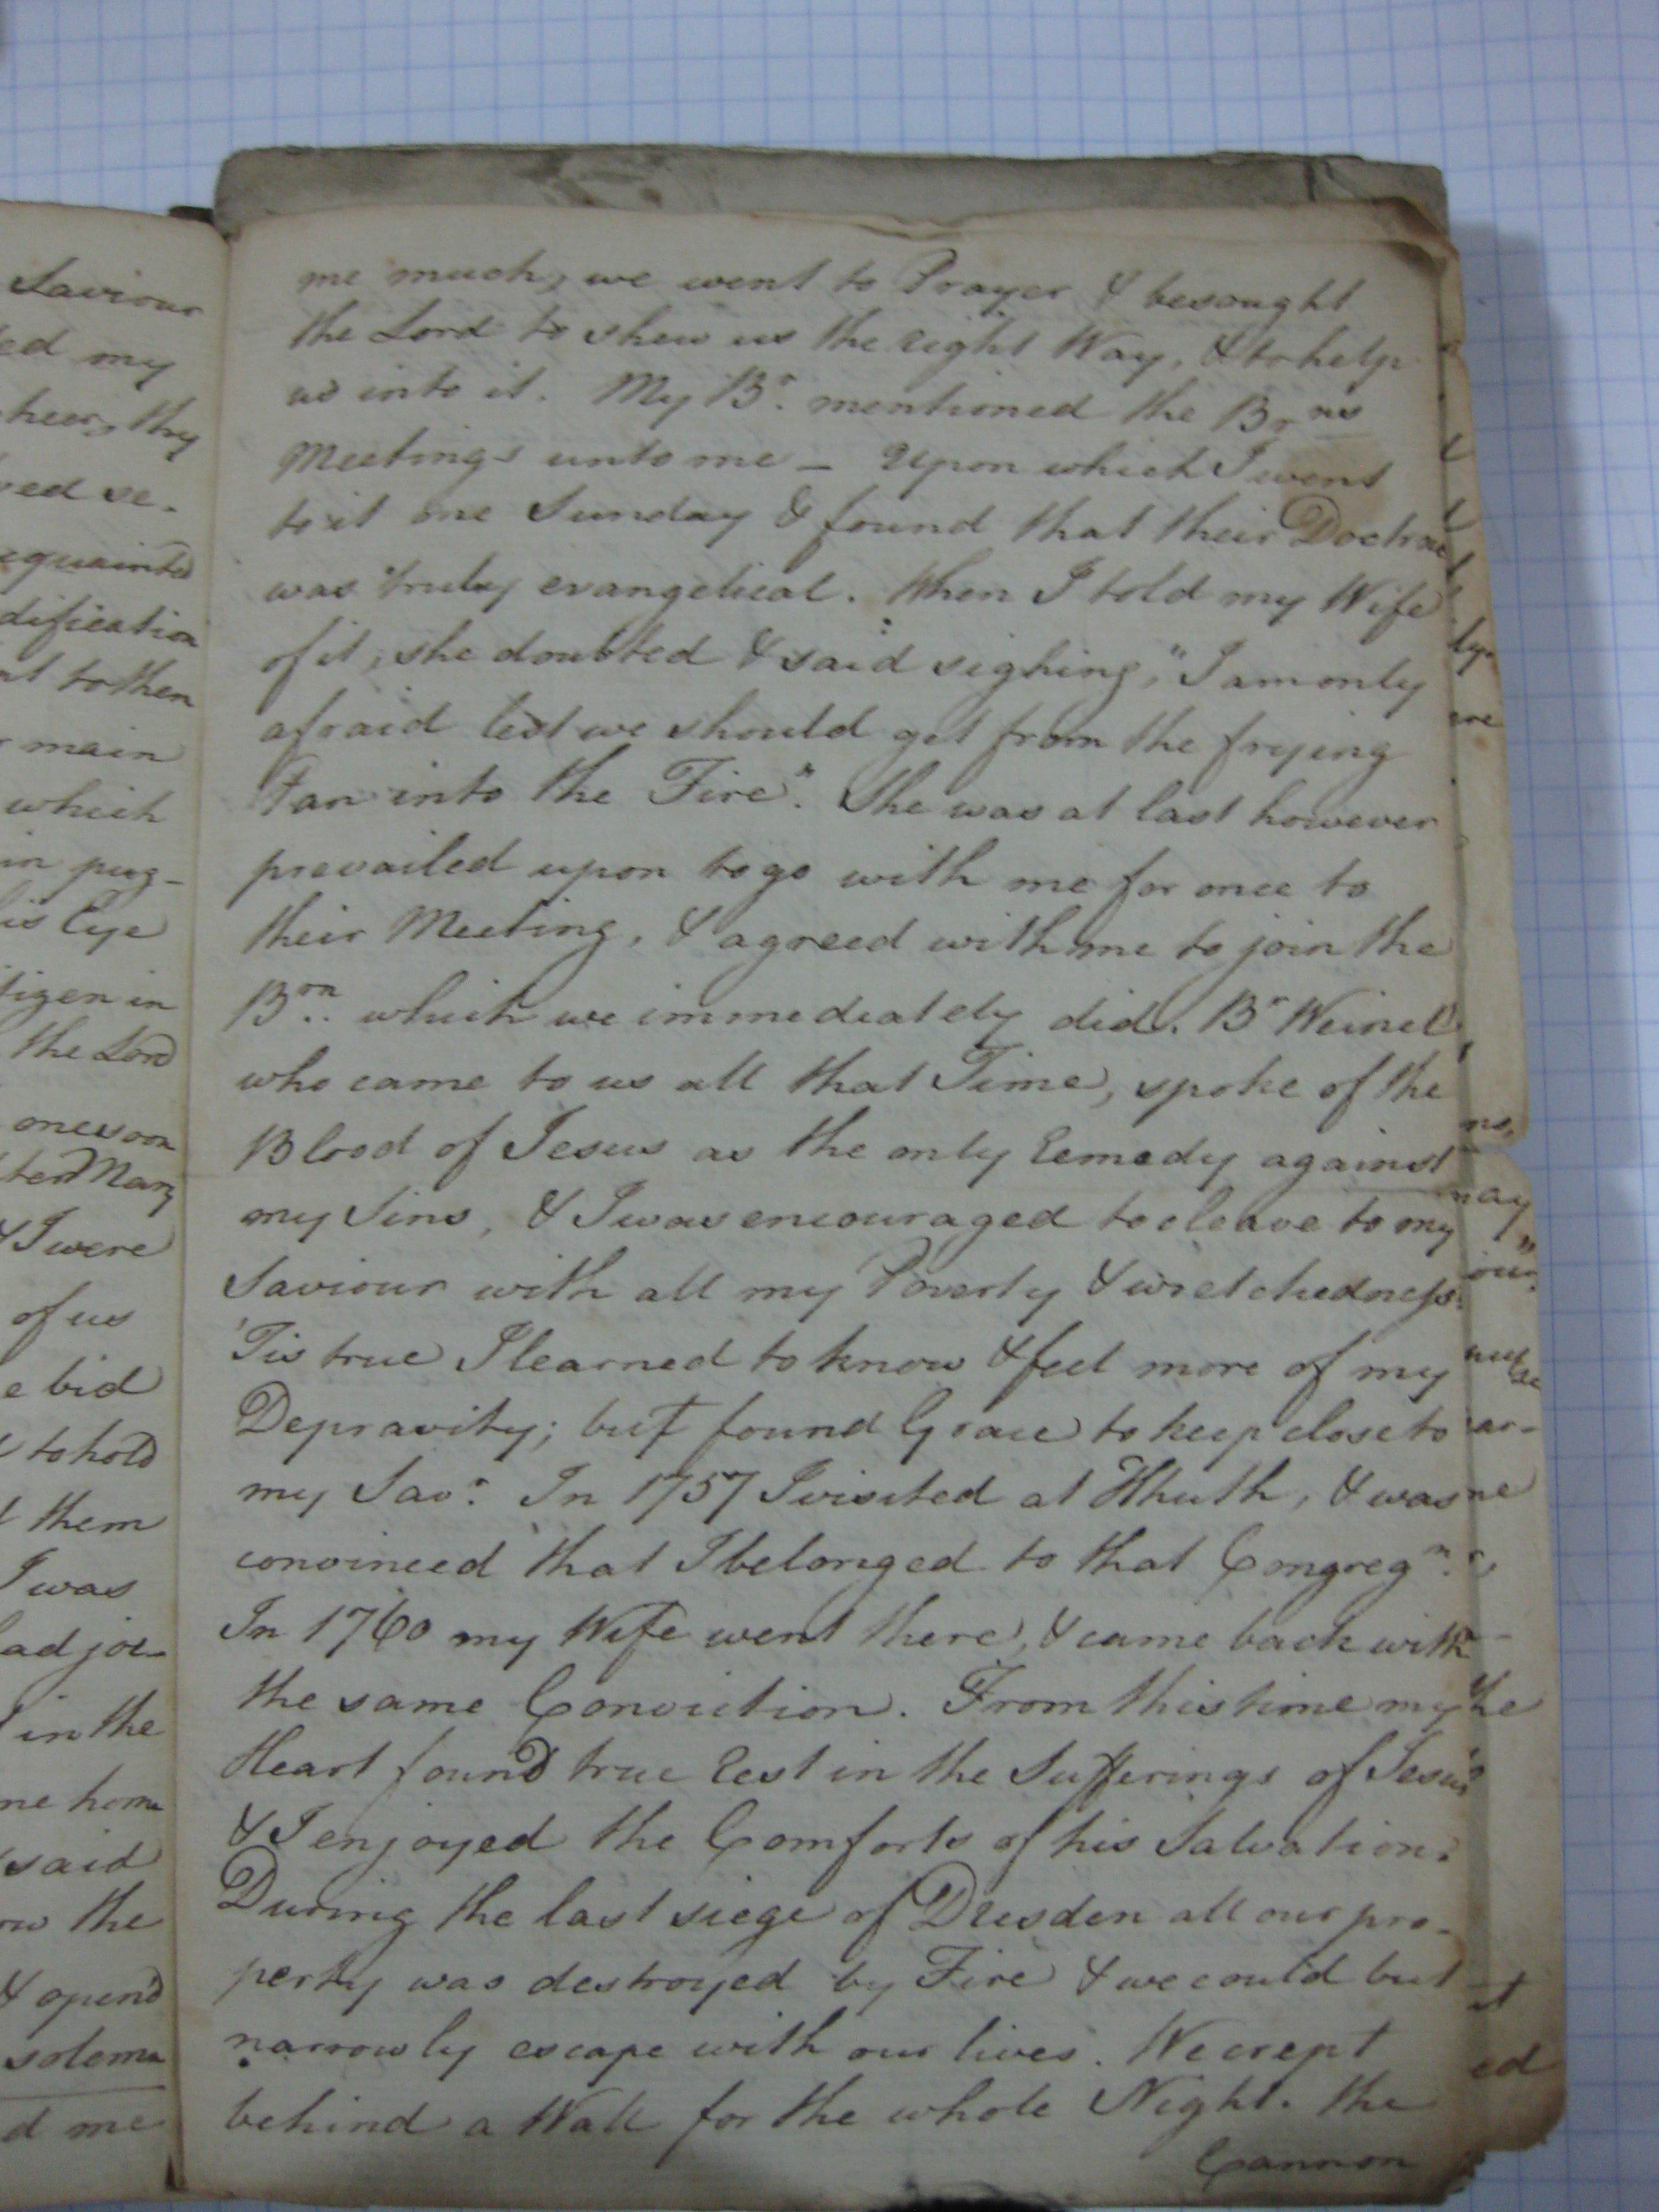 Saviour
ed my
heer, thy
ved se-
cquainted
dification
at to them
main
which
in pug-
is Eye
tizen in
the Lord
one soon
ted Mary
& I were
of us
e bid
to hold
them
I was
ad joi-
in the
me home
said
the
& open'd
solemn
d me
me much, we went to Prayer & besought
the Lord to shew us the right Way, & to help
us into it. My Br. mentioned the Brns
Meetings unto me — Upon which I went
to it one Sunday & found that their Doctrine
was truly evangelical. When I told my Wife
of it, she doubted & said sighing, "I am only
afraid lest we should get from the frying
Pan into the Fire". She was at last however
prevailed upon to go with me for once to
their Meeting, & agreed with me to join the
Brn. which we immediately did. Br Weinel
who came to us all that Time, spoke of the
Blood of Jesus as the only Remedy against
my Sins, & I was encouraged to cleave to my
Saviour with all my Poverty & wretchedness.
'Tis true I learned to know & feel more of my
Depravity; but found Grace to keep close to
my Savr. In 1757 I visited at Hhuth, & was
convinced that I belonged to that Congregn.
In 1760 my Wife went there, & came back with
the same Conviction. From this time my
Heart found true Rest in the Sufferings of Jesus
& I enjoyed the Comforts of his Salvation.
During the last siege of Dresden all our pro-
perty was destroyed by Fire & we could but
narrowly escape with our lives. We crept
behind a Wall for the whole Night. the
Cannon